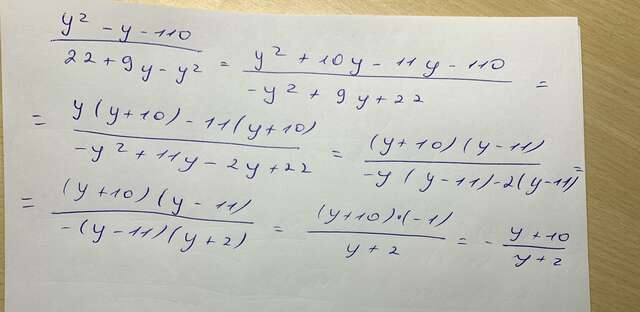 (y² - y - 110)/(22 + 9y - y²) = (y² + 10y - 11y - 110)/(-y² + 9y + 22) =
= (y(y+10) - 11(y+10))/(-y² + 11y - 2y + 22) = ((y+10)(y-11))/(-y(y-11) - 2(y-11)) =
= ((y+10)(y-11))/(-(y-11)(y+2)) = ((y+10)·(-1))/(y+2) = - (y+10)/(y+2)